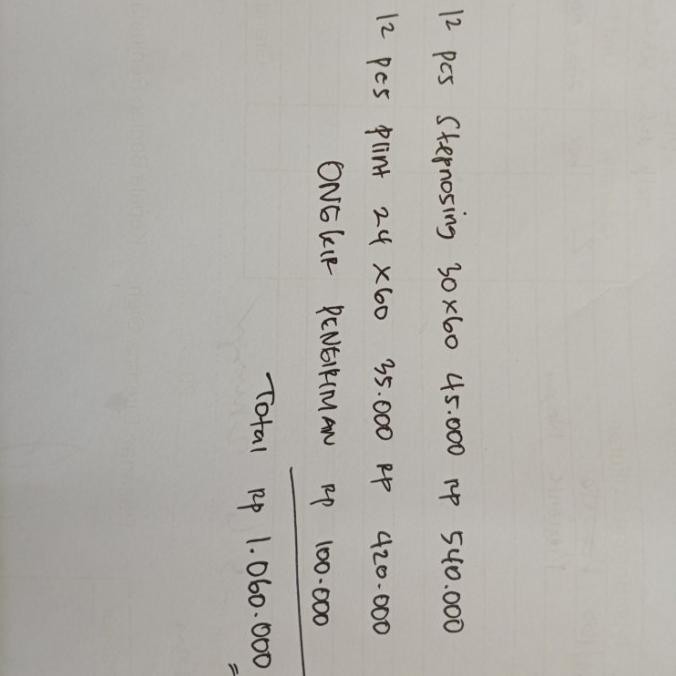 12 pcs Stepnosing 30x60 45.000 Rp 540.000
12 pcs plint 24 x60 35.000 Rp 420.000
ONGKIR PENGIRIMAN Rp 100.000
Total Rp 1.060.000